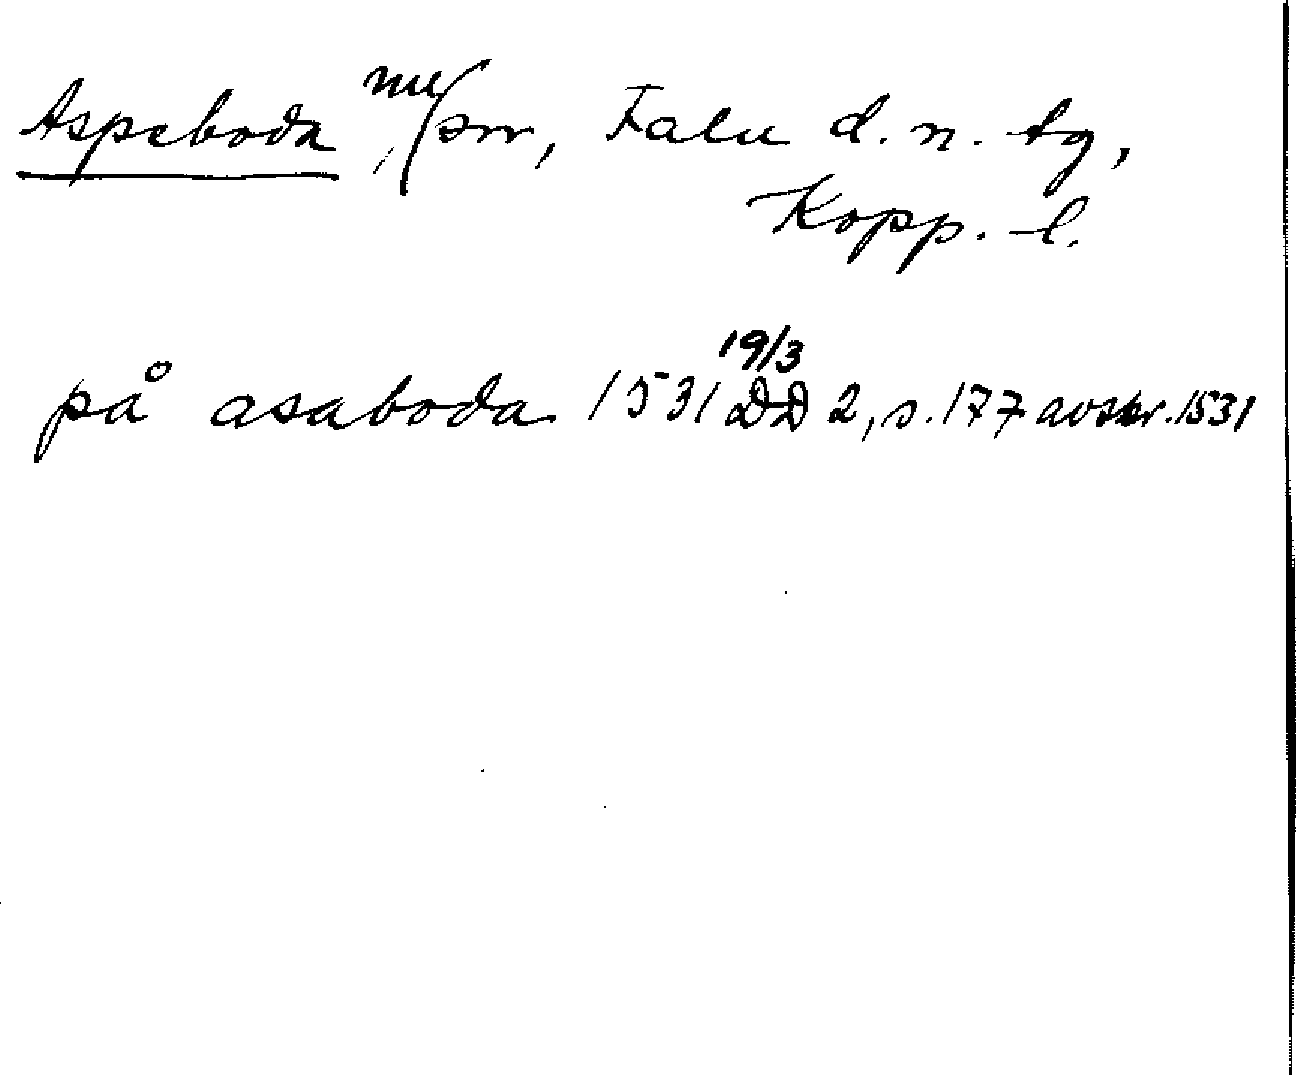 Aspeboda, nu/sn, Falu d. n. tg,
Kopp. l.
på asaboda 1531 19/3 DD 2, s. 177 avskr. 1531